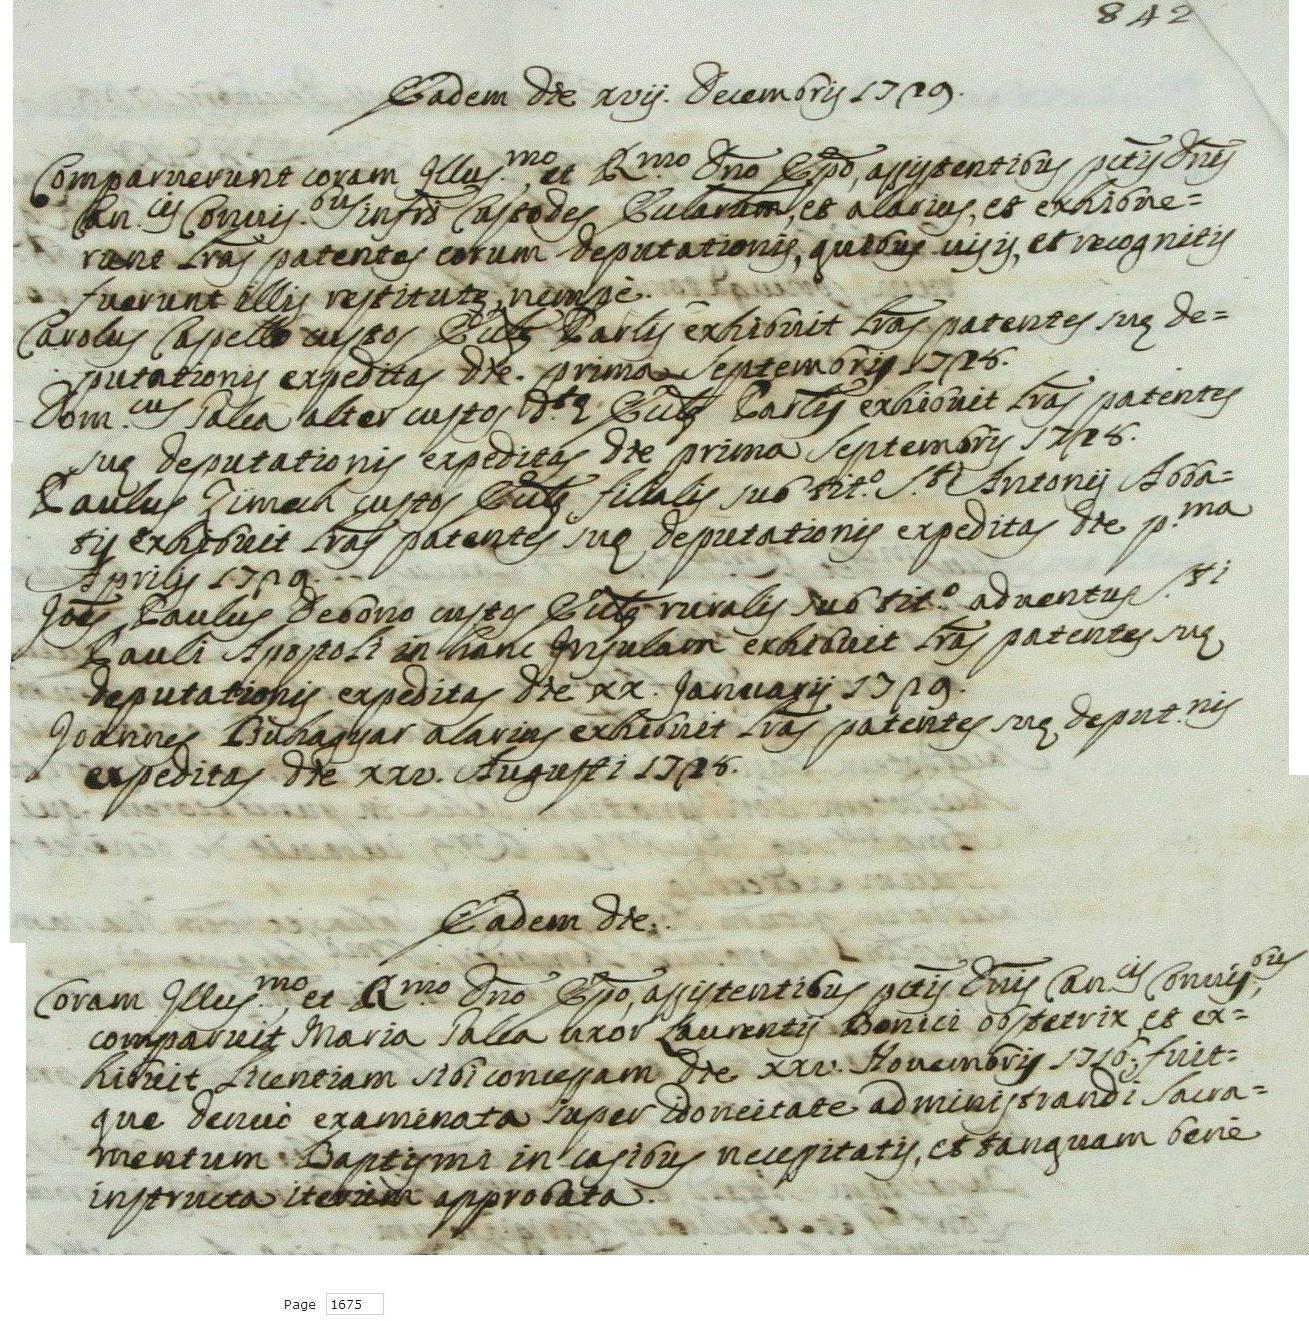 842
Eadem die xvij. Decembris 1729.
Comparuerunt coram Illus.mo et R.mo Dno Epo, assistentibus pctis Dnis
Can.cis Convis.bus infri Custodes Eccliarum, et alarius, et exhibue=
runt Lras patentes eorum deputationis, quibus uisis, et recognitis
fuerunt illis restitutę, nempè.
Carolus Capello custos Ecclę Parlis exhibuit Lras patentes suę de=
putationis expeditas die. prima Septembris 1728.
Dom.cus Salea alter custos d.tę Ecclę Parlis exhibuit Lras patentes
suę deputationis expeditas die prima Septembris 1728.
Paulus Zimech custos Ecclę filialis sub tit.o S.ti Antonij Abba=
tis exhibuit Lras patentes suę deputationis expeditas die p.ma
Aprilis 1729.
Joes Paulus Debono custos Ecclę ruralis sub tit.o aduentus S.ti
Pauli Apostoli in hanc Insulam exhibuit Lras patentes suę
deputationis expeditas die xx. Januarij 1729.
Joannes Buhagiar alarius exhibuit Lras patentes suę deput.nis
expeditas die xxv. Augusti 1728.
Eadem die.
Coram Illus.mo et R.mo Dno Epo, assistentibus pctis Dnis Can.cis Convis.bus,
comparuit Maria Salea uxor Laurentij Bonici obstetrix, et ex=
hibuit Licentiam sibi concessam die xxv. Nouembris 1716; fuit=
que denuò examinata super idoneitate administrandi Sacra=
mentum Baptismi in casibus necessitatis, et tanquam benè
instructa iterum approbata.
Page 1675